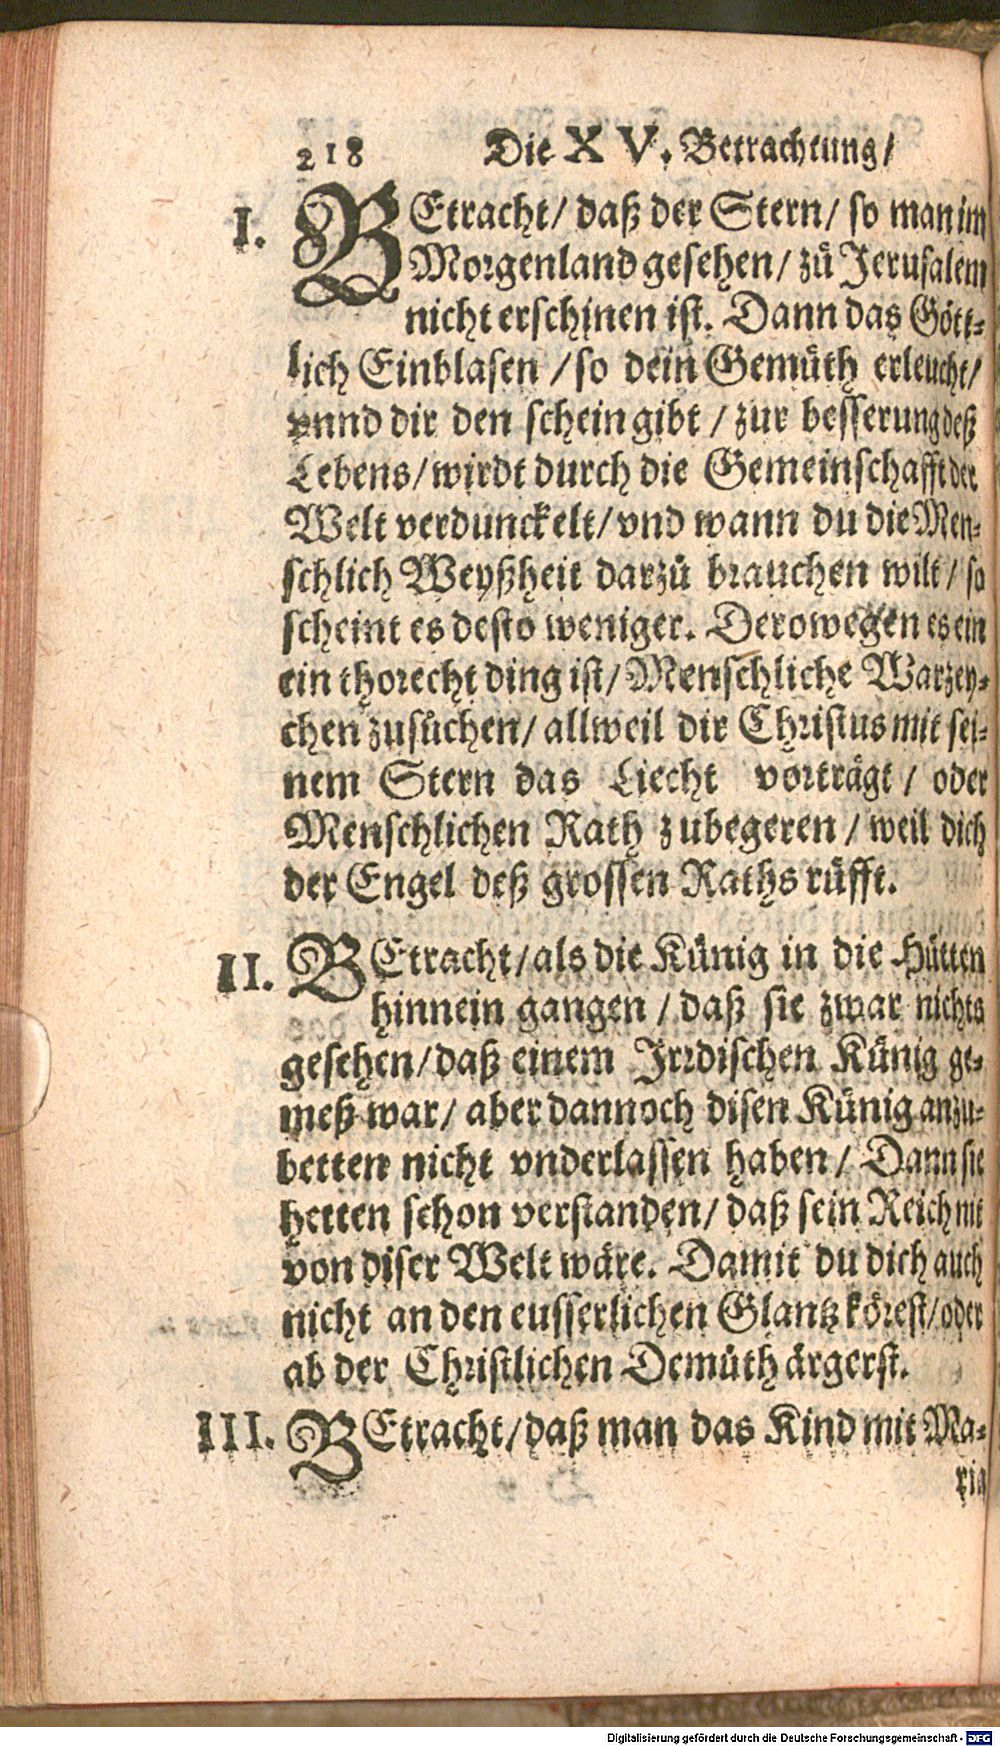 218 Die XV. Betrachtung/
I. BEtracht/ daß der Stern/ so man im
Morgenland gesehen/ zů Jerusalem
nicht erschinen ist. Dann das Gött-
lich Einblasen /so dein Gemüth erleucht/
vnnd dir den schein gibt / zur besserung deß
Lebens/ wirdt durch die Gemeinschafft der
Welt verdunckelt/ vnd wann du die Men-
schlich Weyßheit darzů brauchen wilt/ so
scheint es desto weniger. Derowegen es ein
ein thorecht ding ist/ Menschliche Warzey-
chen zusůchen/ allweil dir Christus mit sei-
nem Stern das Liecht vorträgt / oder
Menschlichen Rath zubegeren / weil dich
der Engel deß grossen Raths rüfft.
II. BEtracht/ als die Künig in die Hütten
hinnein gangen / daß sie zwar nichts
gesehen/ daß einem Jrrdischen Künig ge-
meß war/ aber dannoch disen Künig anzu-
betten nicht vnderlassen haben/ Dann sie
hetten schon verstanden/ daß sein Reich nit
von diser Welt wäre. Damit du dich auch
nicht an den eusserlichen Glantz körest/ oder
ab der Christlichen Demüth ärgerst.
III. BEtracht/ daß man das Kind mit Ma-
ria
Digitalisierung gefördert durch die Deutsche Forschungsgemeinschaft - DFG